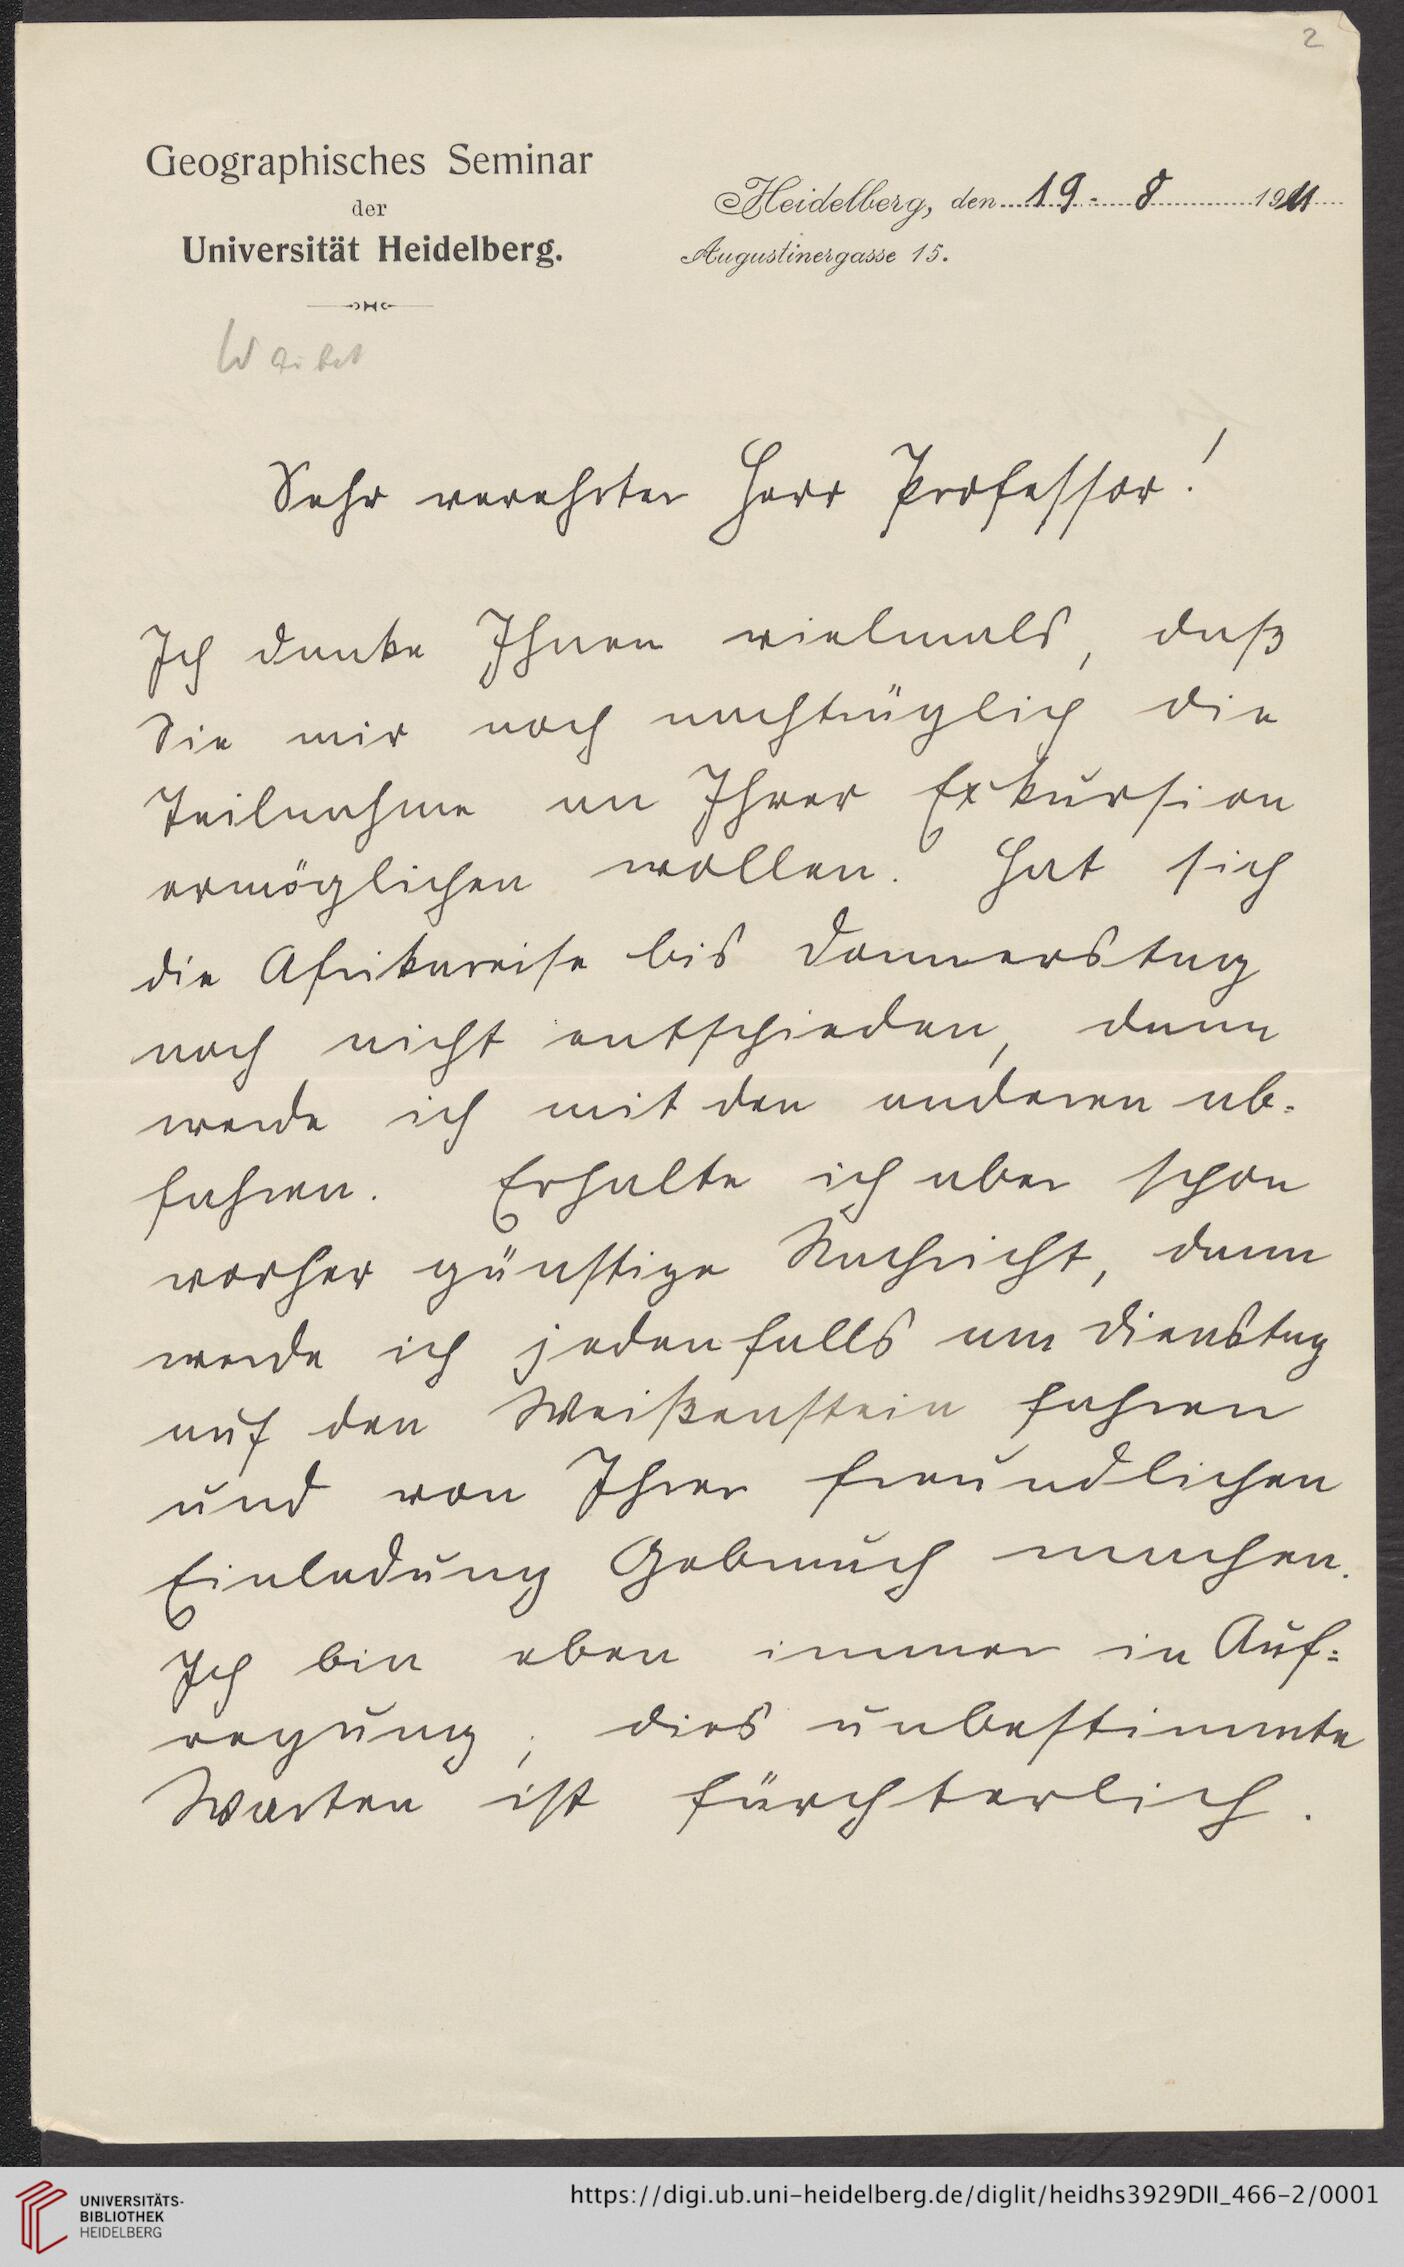 2
Geographisches Seminar
der
Universität Heidelberg.
Heidelberg, den 19. 8 1911
Augustinergasse 15.
Waibel
Sehr verehrter Herr Professor!
Ich danke Ihnen vielmals, daß
Sie mir noch nachträglich die
Teilnahme an Ihrer Exkursion
ermöglichen wollen. Hat sich
die Afrikareise bis Donnerstag
noch nicht entschieden, dann
werde ich mit den anderen ab-
fahren. Erhalte ich aber schon
vorher günstige Nachricht, dann
werde ich jedenfalls am Dienstag
auf den Weißenstein fahren
und von Ihrer freundlichen
Einladung Gebrauch machen.
Ich bin eben immer in Auf-
regung; dies unbestimmte
Warten ist fürchterlich.
UNIVERSITÄTS-
BIBLIOTHEK
HEIDELBERG
https://digi.ub.uni-heidelberg.de/diglit/heidhs3929DII_466-2/0001